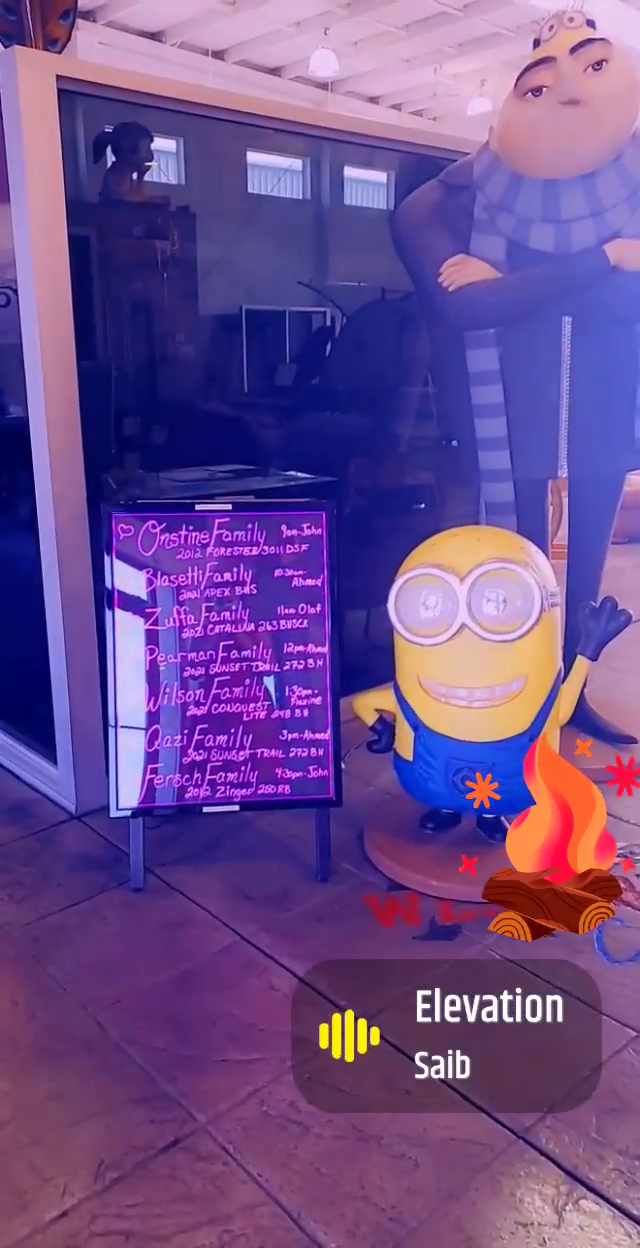 Onstine Family 9am-John
2012 FORESTER 3011 DSF
Blasetti Family 10:30am-
Ahmed
2021 APEX BHS
Zuffa Family 11am Olaf
2021 CATALINA 263 BHSCK
Pearman Family 12pm-Ahmed
2021 SUNSET TRAIL 272 BH
Wilson Family 1:30pm-
Maxine
2021 CONQUEST
LITE 248 BH
Qazi Family 3pm-Ahmed
2021 SUNSET TRAIL 272 BH
Fersch Family 4:30pm-John
2012 Zinger 250 RB
Elevation
Saib